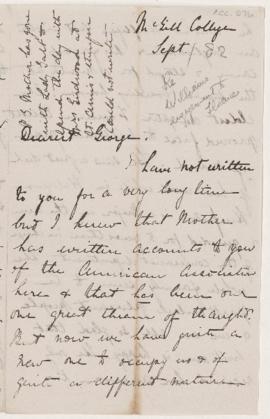 McGill College
Sept 1/82
ACC. 976
re
Williams
engagement to
P.S. Mother has gone
with Lady Galt to
spend the day with
Mrs at
St. Annes & therefore
could not write
Dearest George.
I have not written
to you for a very long time
but I knew that Mother
has written accounts to you
of the American Association
here & that has been our
one great theme of thought.
But now we have quite a
new one to occupy us & of
quite a different nature